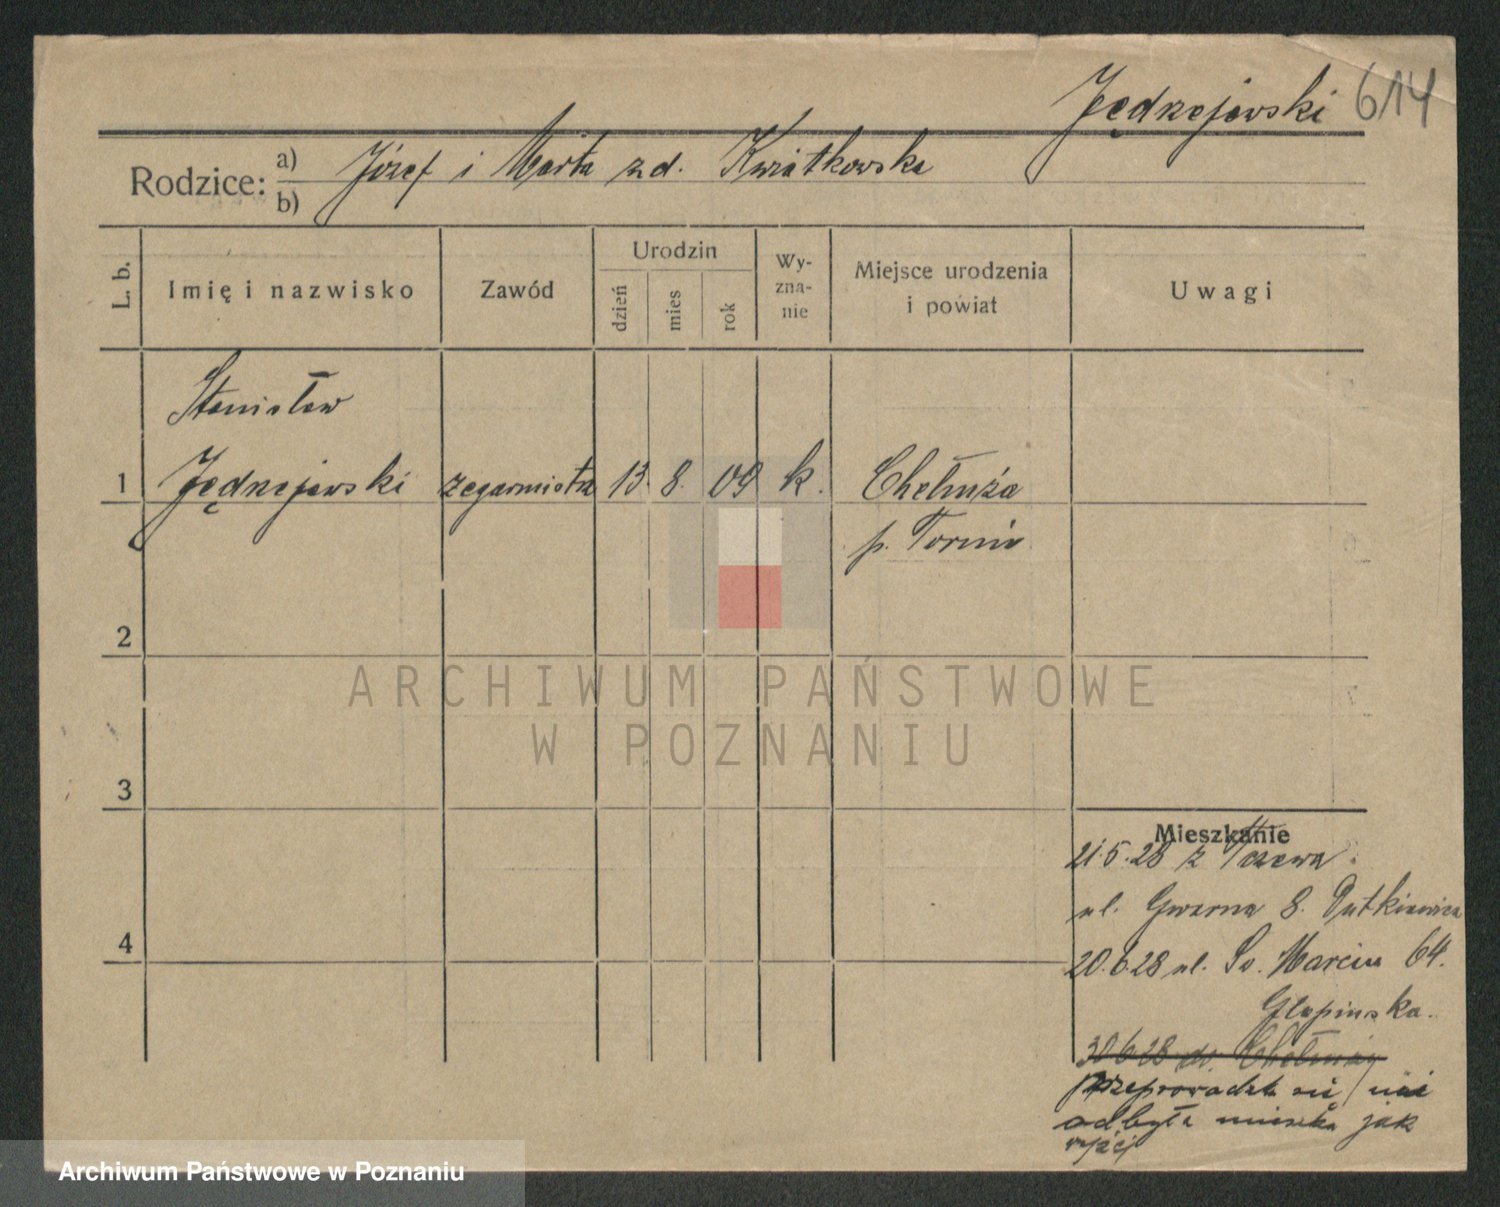 Jędrzejewski 614
Rodzice: a) Józef i Marta zd. Kwiatkowska
b)
L. b. Imię i nazwisko Zawód Urodzin dzień mies rok Wy-zna-nie Miejsce urodzenia i powiat Uwagi
Stanisław
1 Jędrzejewski zegarmistrz 13. 8. 09 k. Chełmża
p. Toruń
2
ARCHIWUM PAŃSTWOWE
W POZNANIU
3
Mieszkanie
21.5.28 z Tczewa
ul. Gwarna 8. Dutkiewicz
4
20.6.28 ul. Św. Marcin 64.
Glapinska.
30.6.28 do Chełmży
przeprowadzka się nie
odbyła mieszka jak
wyżej
Archiwum Państwowe w Poznaniu